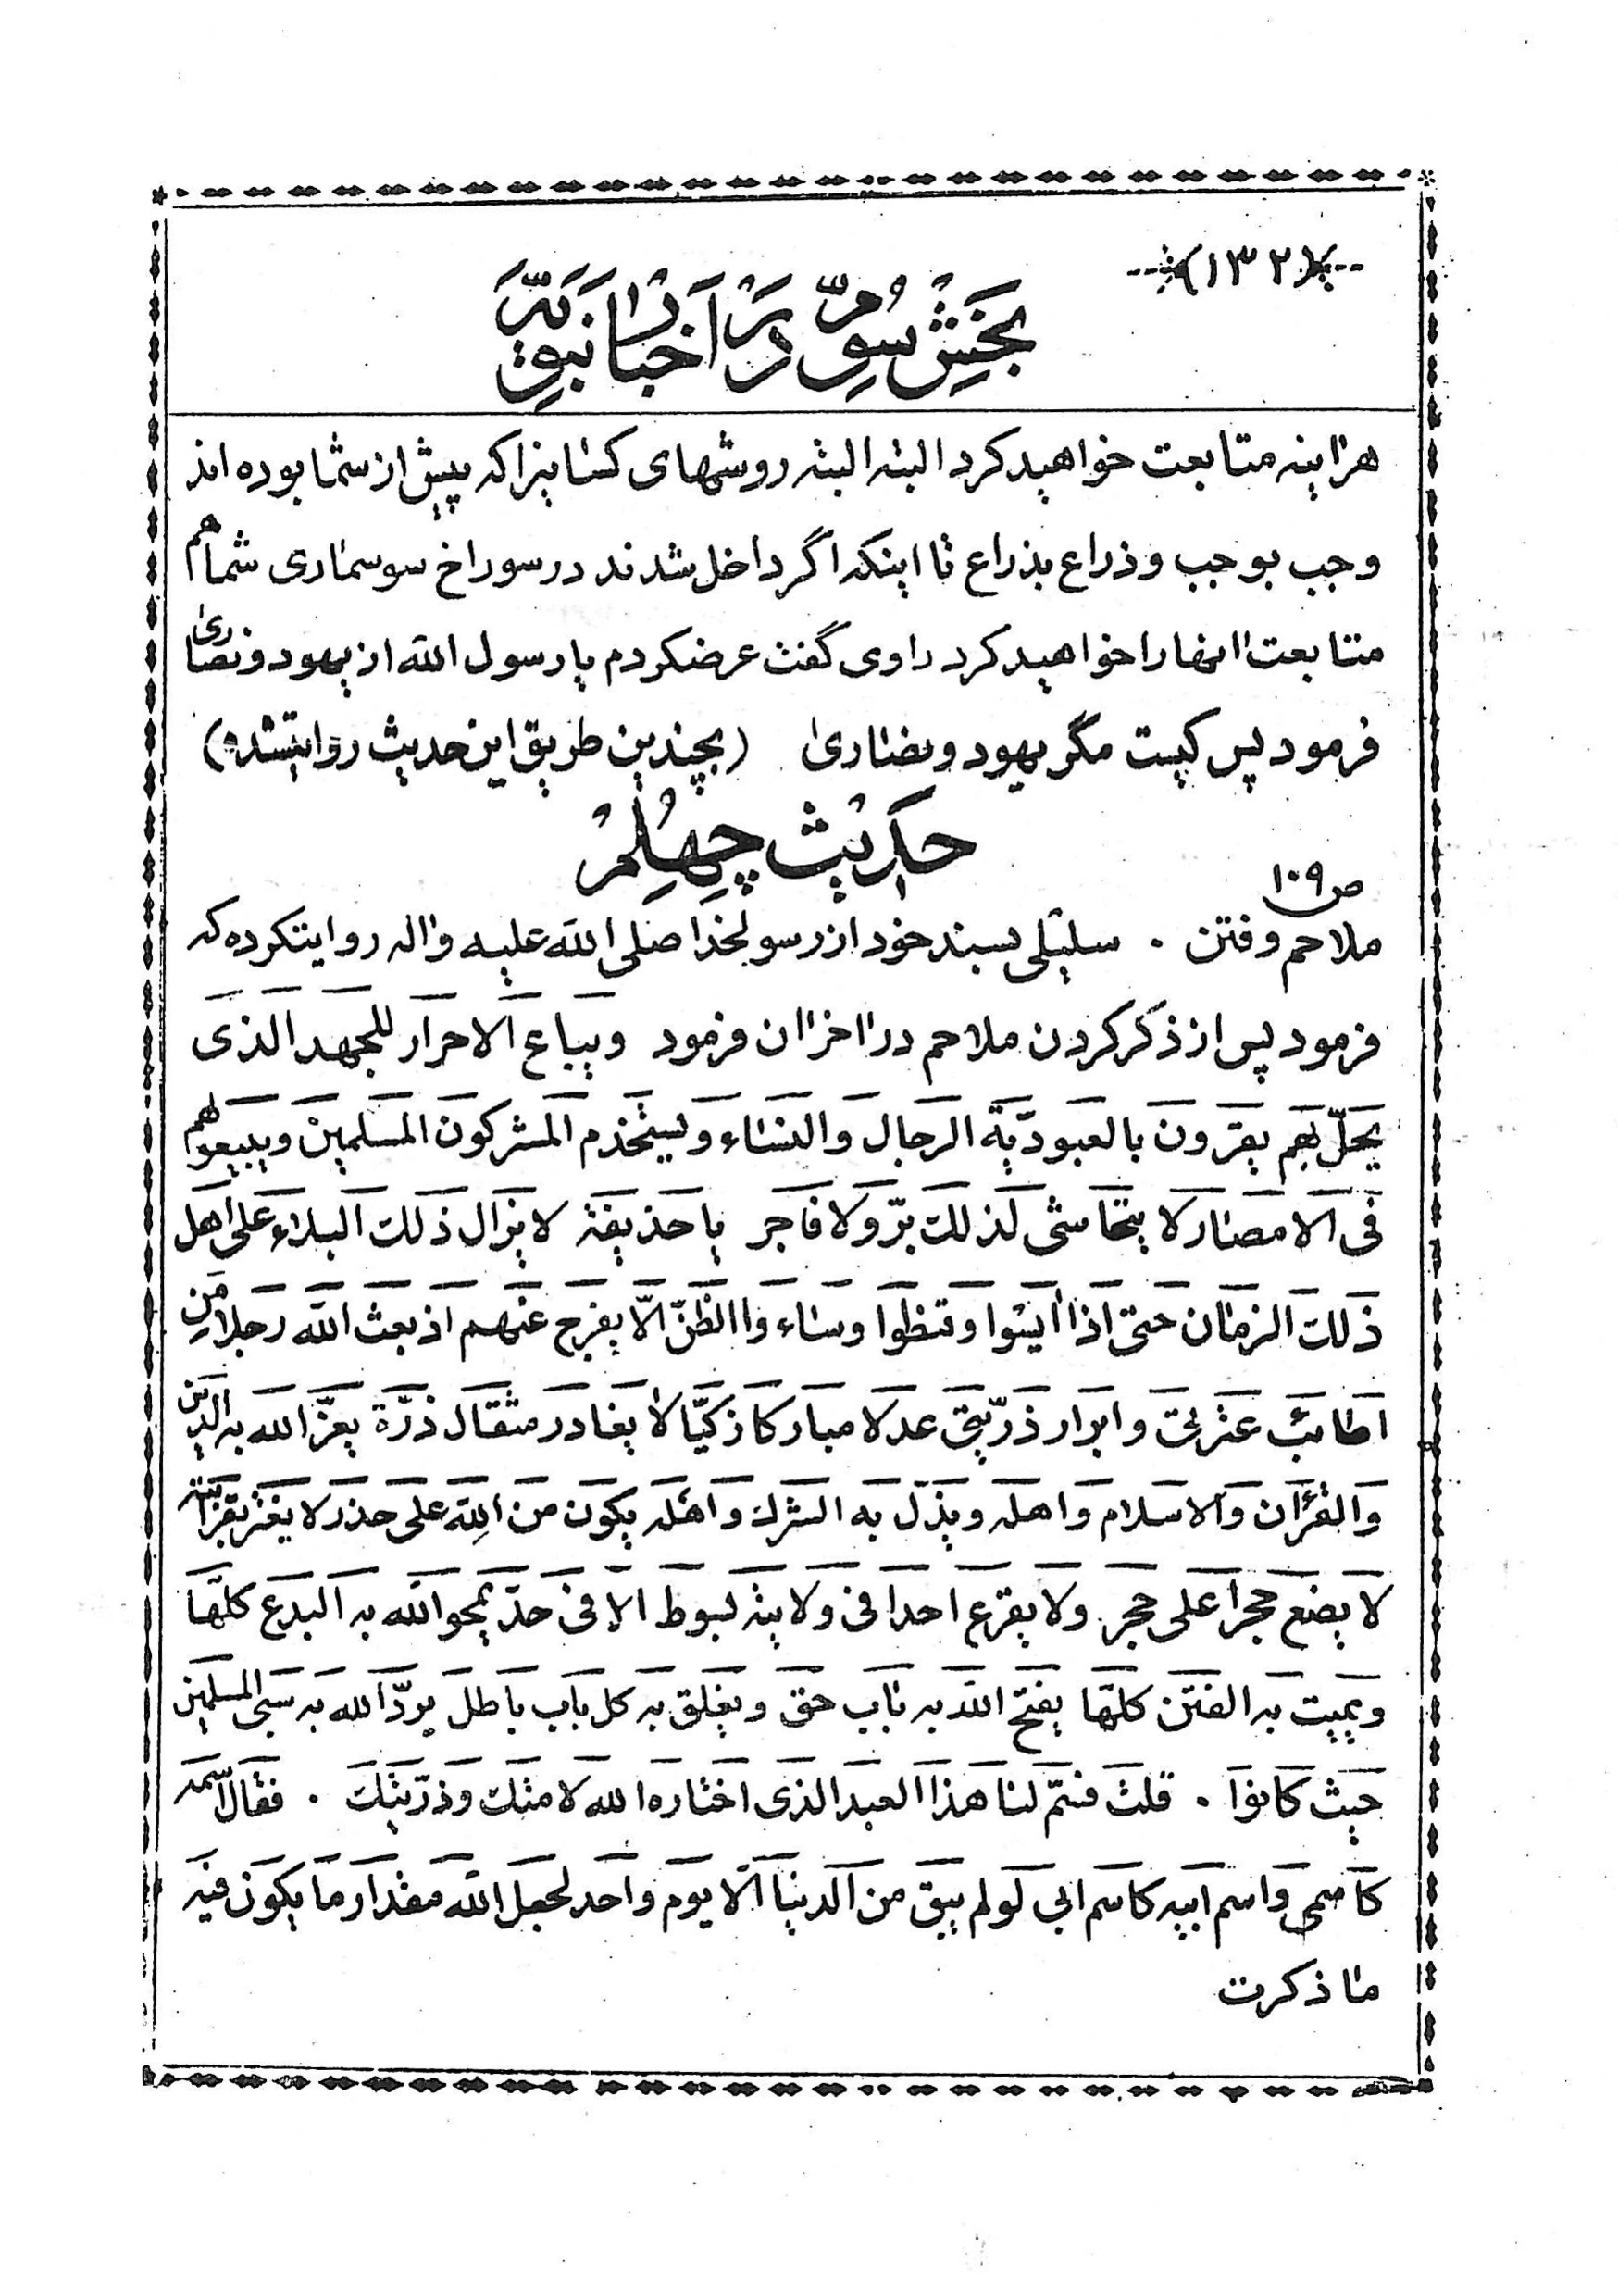 ﴿۱۳۲﴾
بخش سوم در اخبار نبویّه
هراینه متابعت خواهید کرد البته البته روشهای کسانیرا که پیش از شما بوده اند
وجب بوجب و ذراع بذراع تا اینکه اگر داخل شدند در سوراخ سوسماری شما هم
متابعت انها را خواهید کرد راوی گفت عرضکردم یا رسول الله از یهود و نصاری
فرمود پس کیست مگر یهود و نصاری (بچندین طریق این حدیث روایتشده)
حدیث چهلم
ص۱۰۹
ملاحم و فتن . سلیلی بسند خود از رسولخدا صلی الله علیه واله روایتکرده که
فرمود پس از ذکر کردن ملاحم در اخر ان فرمود ویباع الاحرار للجهد الذی
یحلّ بهم یقرّون بالعبودیّة الرجال والنساء ویستخدم المشرکون المسلمین ویبیعوهم
فی الامصار لا یتحاشی لذلك برّ ولا فاجر یا حذیفة لا یزال ذلك البلاء علی اهل
ذلك الزمان حتی اذا ایسوا وقنطوا وساءوا الظنّ الّا یفرج عنهم اذ بعث الله رجلا من
اطائب عترتی وابرار ذرّیتی عدلا مبارکا زکیّا لا یغادر مثقال ذرّة یعزّ الله به الدین
والقرأن والاسلام واهله ویذلّ به الشرك واهله یکون من الله علی حذر لا یغترّ بقرابته
لا یضع حجرا علی حجر ولا یقرع احدا فی ولایته بسوط الّا فی حدّ یمحو الله به البدع کلّها
ویمیت به الفتن کلّها یفتح الله به باب حق ویغلق به کل باب باطل یردّ الله به سبی المسلمین
حیث کانوا . قلت فسمّ لنا هذا العبد الذی اختاره الله لامتك وذرّیتك . فقال اسمه
کاسمی واسم ابیه کاسم ابی لو لم یبق من الدنیا الّا یوم واحد لجعل الله مقدار ما یکون فیه
ما ذکرت